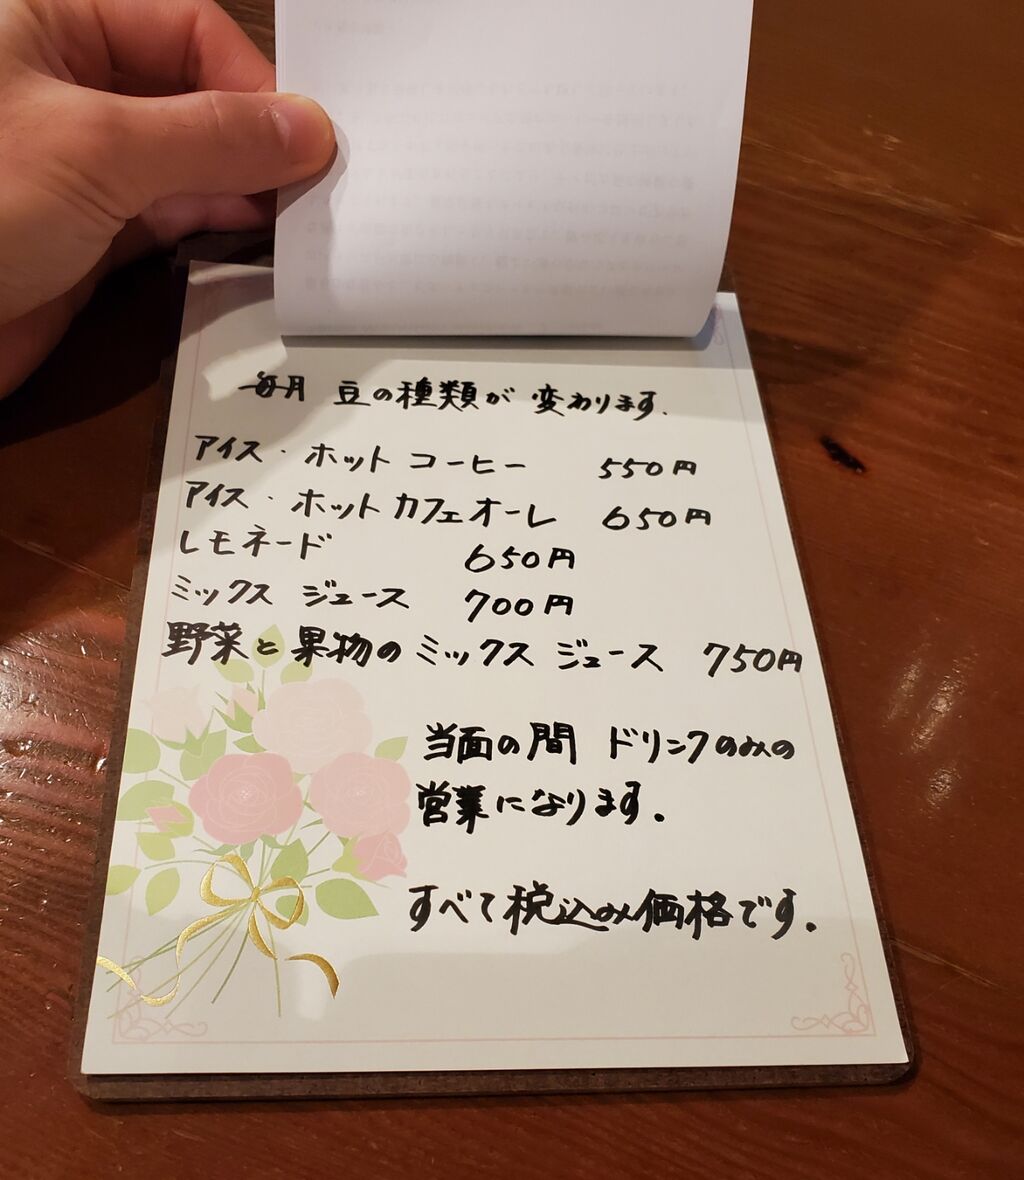 毎月 豆の種類が 変わります.
アイス・ホット コーヒー 550円
アイス・ホット カフェオーレ 650円
レモネード 650円
ミックス ジュース 700円
野菜と果物の ミックス ジュース 750円
当面の間 ドリンクのみの
営業になります.
すべて税込み価格です.